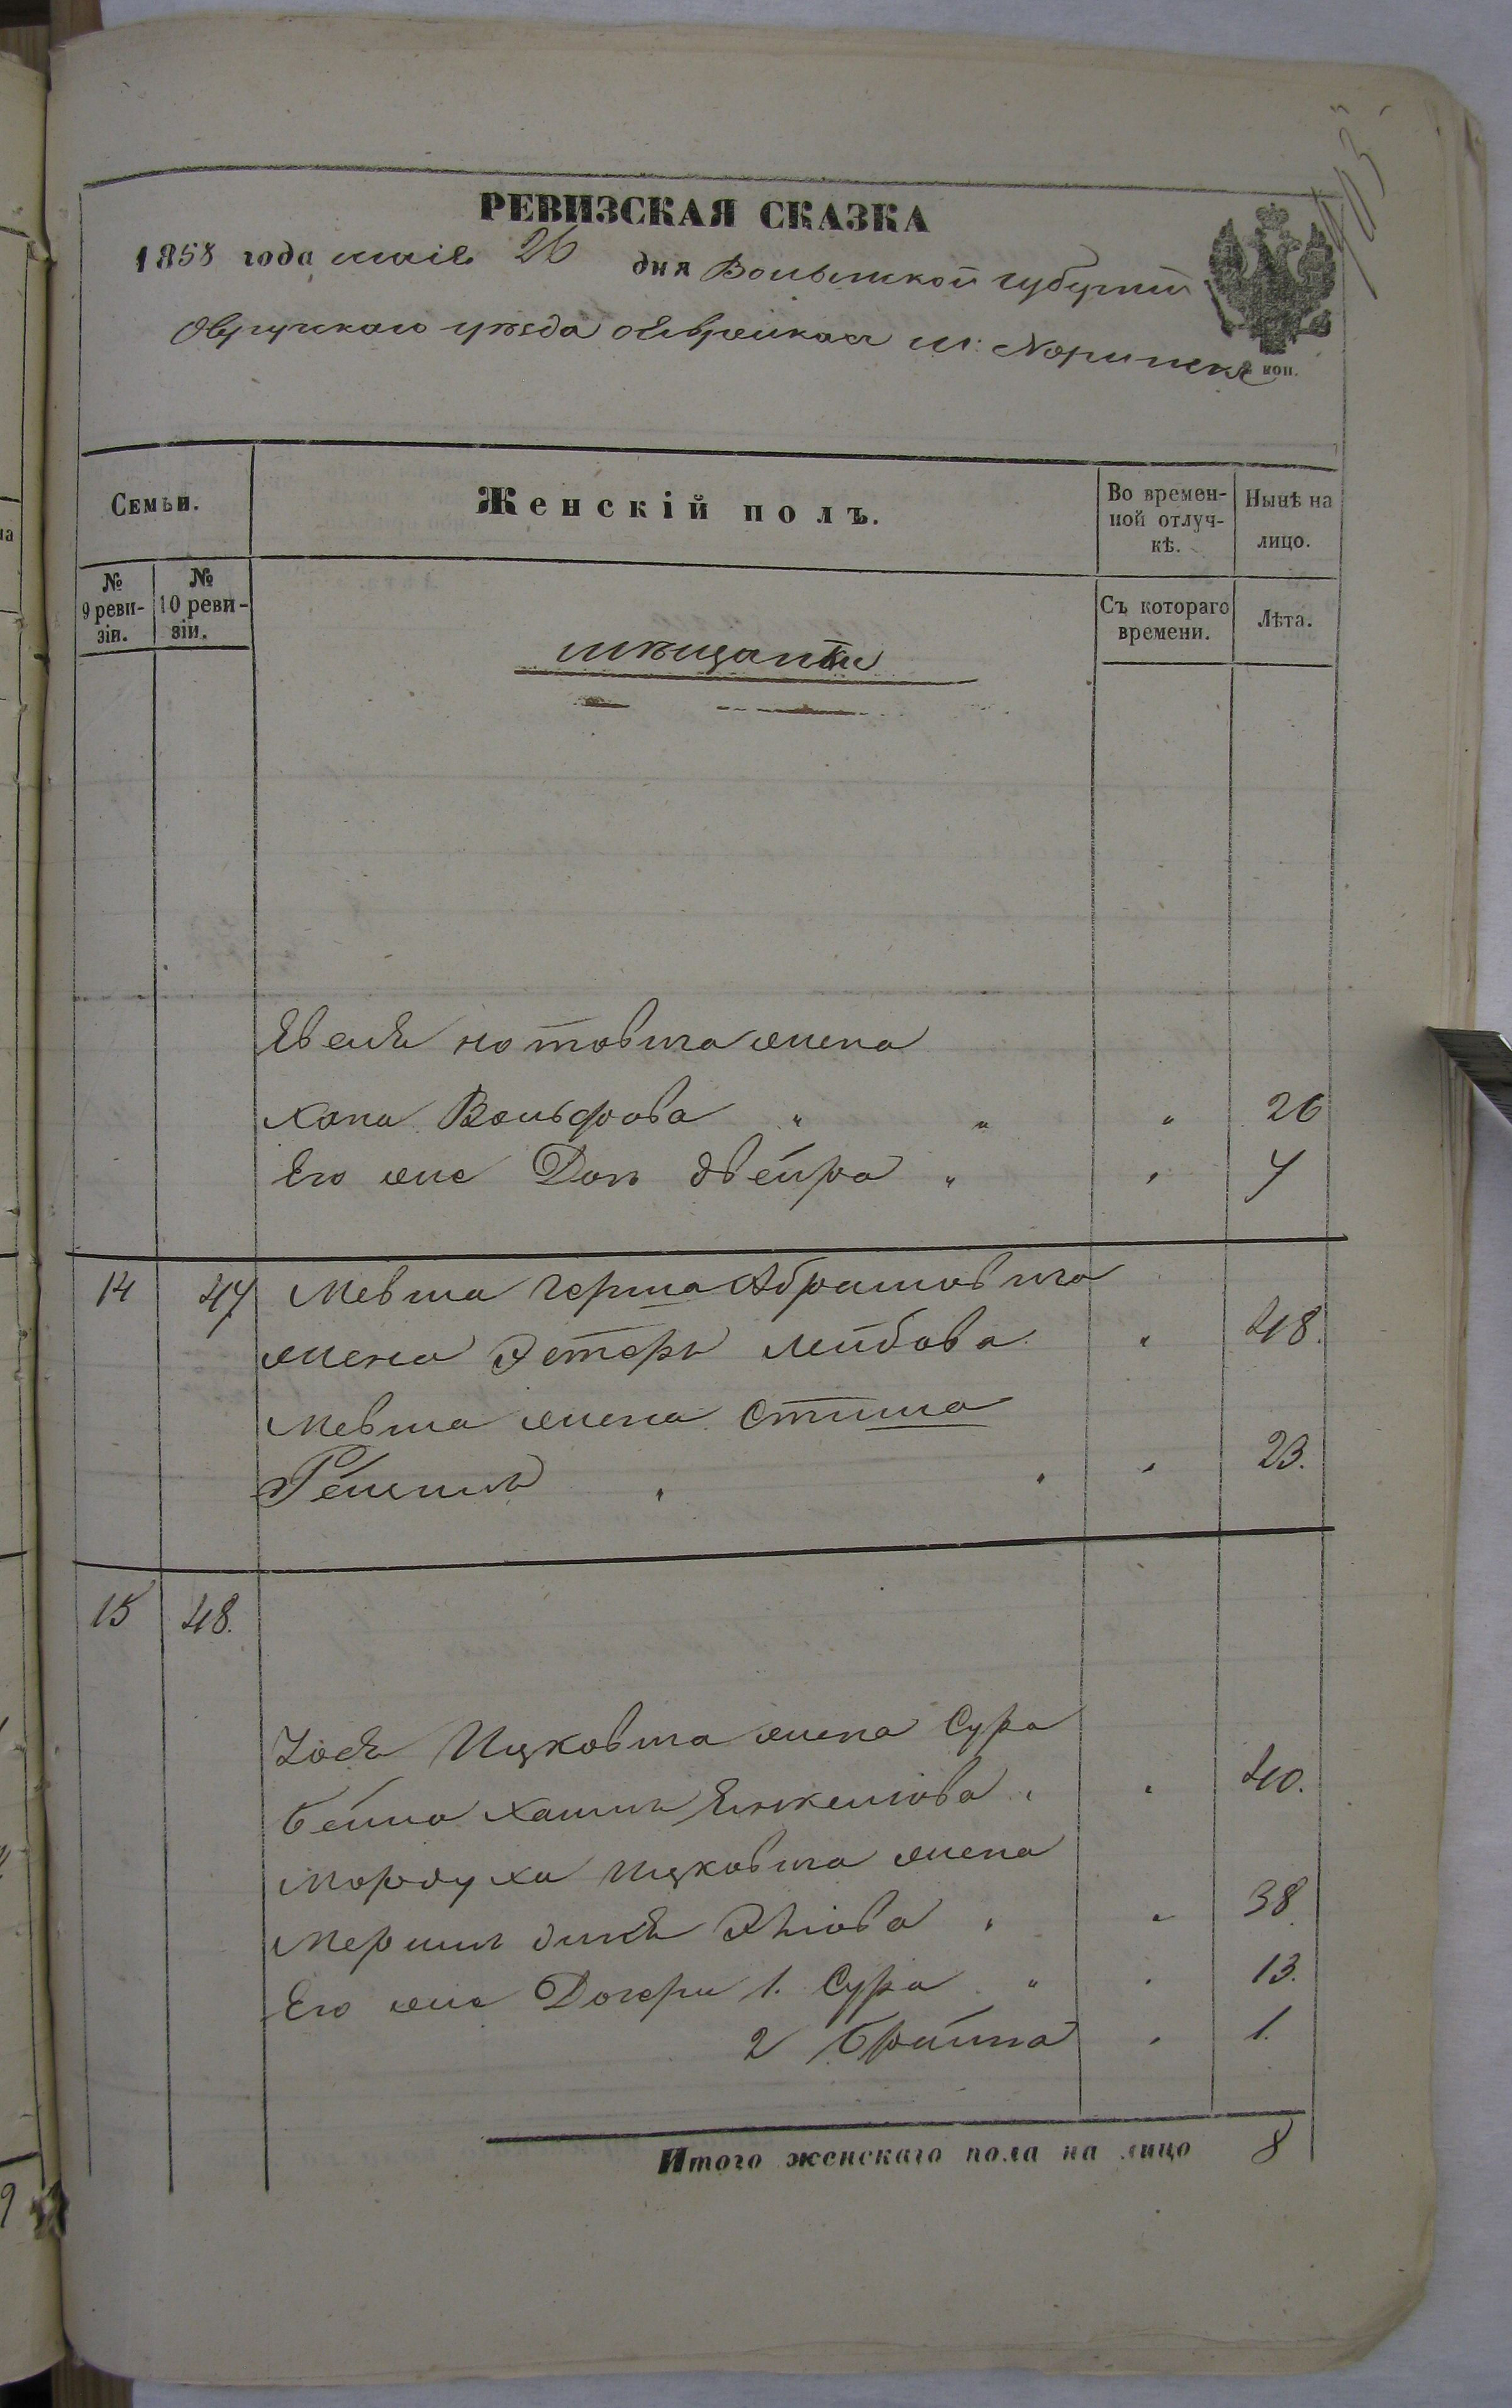 РЕВИЗСКАЯ СКАЗКА
1858 года маія 26 дня Волынской губерніи
Овручскаго уѣзда о Евреикахъ м: Норинска
коп.
Семьи.
Женскій полъ.
Во времен-
ной отлуч-
кѣ.
Нынѣ на
лицо.
№
9 реви-
зіи.
№
10 реви-
зіи.
Съ котораго
времени.
Лѣта.
мѣщанки
нотовича жена
Хана Вольфова " " " 26
Его же Дочь двейра " " 7
14 47 Мевша герша Абрамовича
жена Эстеръ лейбова " 48.
Мевша жена
" " " 23.
15 48.
Ицковича жена Сура
бейла Янкелева " " 40.
Мордуха Ицковича жена
" " 38
Его же Дочери 1. Сура " " 13.
2 брайна " 1.
Итого женскаго пола на лицо 8